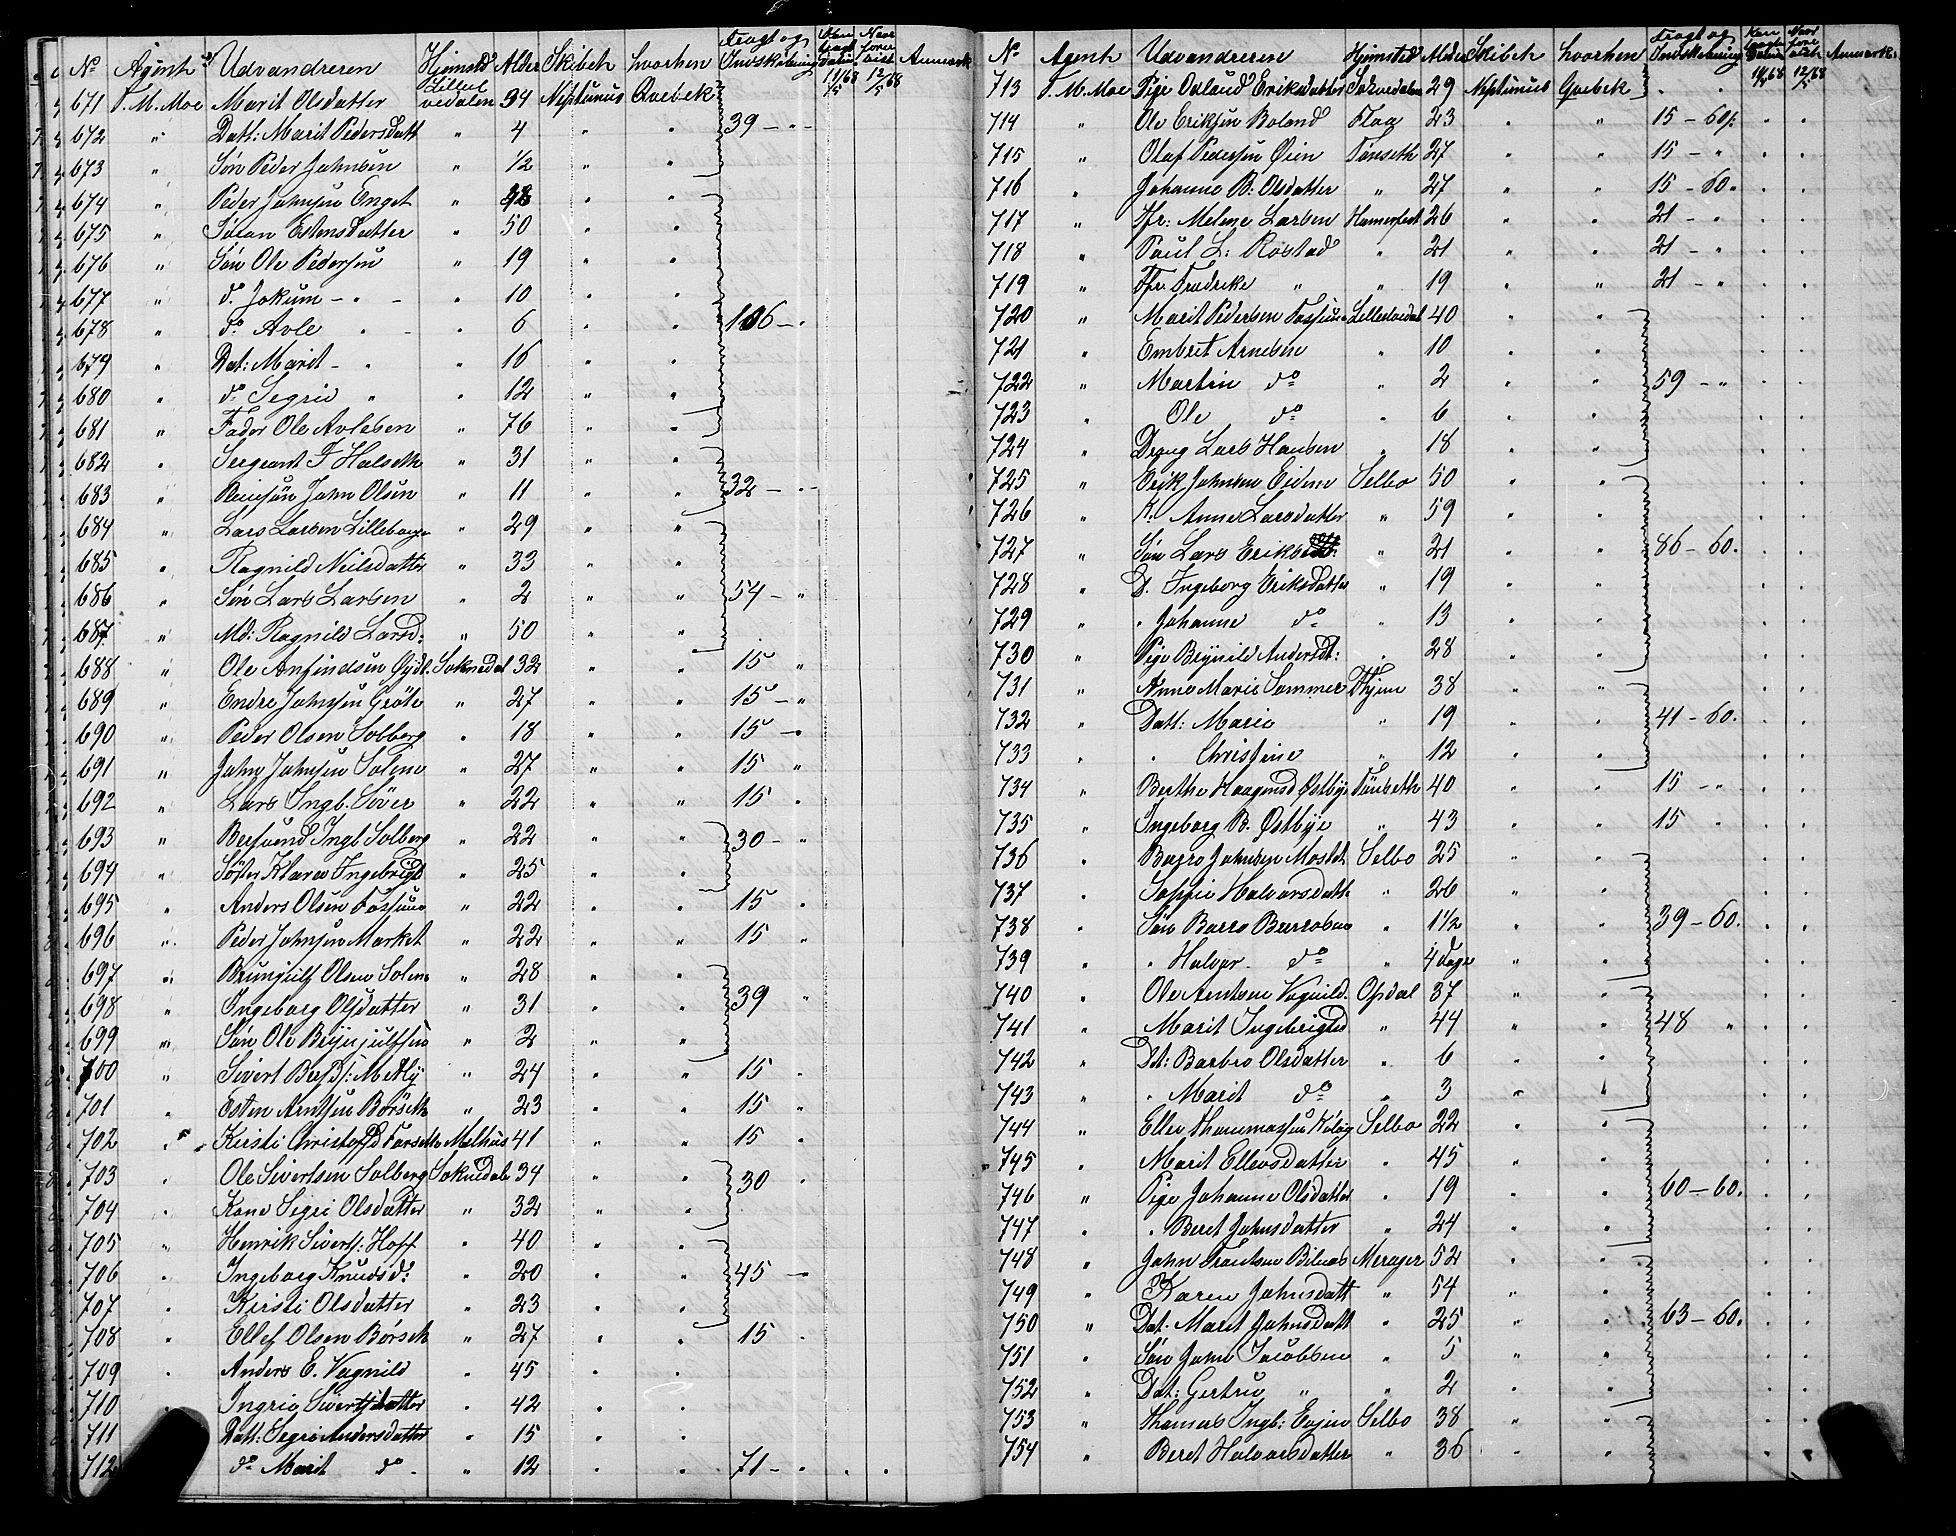 No Agent Udvandreren Hjemsted Alder Skibets hvorhen Fragt og Indskibning Kontraktens Datum 11/5 68 Naar forevist 12/5 68 Anmærk
671 F. M. Moe Marit Olsdatter Lillelvedalen 34 Neptunus Qvebek
672 " Datt: Marit Pedersdatt " 4 " " 39 - " -
673 " Søn Peder Johnsen " 1/2 " "
674 " Peder Johnsen Enget " 48 " "
675 " Estensdatter " 50 " "
676 " Søn Ole Pedersen " 19 " "
677 " do Jokum - " - " 10 " "
678 " do Avle " - " 6 " " 106 - "
679 " Dat: Marit - " " 16 " "
680 " do Segrid " " 12 " "
681 " Fader Ole Avlesen " 76 " "
682 " Sergeant F Halseth " 31 " "
683 " Pleiesøn John Olsen " 11 " " 32 - "
684 " Lars Larsen Lilleberge " 29 " "
685 " Ragnild Neilsdatter " 33 " "
686 " Søn Lars Larsen " 2 " " 54 - "
687 " Md: Ragnild Larsd: " 50 " "
688 " Ole Anfindsen Soknedal 32 " " 15 "
689 " Endre Johnsen Gröte " 27 " " 15 - "
690 " Peder Olsen Solberg " 18 " " 15 - "
691 " John Johnsen Solem " 27 " " 15 "
692 " Lars Ingb. Söver " 22 " " 15 "
693 " Bersvend Ingb Solberg " 22 " " 30 - "
694 " Söster Klara Ingebrigd " 25 " "
695 " Anders Olsen Fossum " 22 " " 15 "
696 " Peder Johnsen Market " 22 " " 15 "
697 " Brynjulf Olsen Solem " 28 " "
698 " Ingeborg Olsdatter " 31 " " 39 "
699 " Søn Ole Brynjulfsen " 2 " "
700 " Sivert Medly " 24 " " 15 "
701 " Esten Arntsen Börseth " 23 " " 15 "
702 " Kirsti Christofsd Forseth Melhus 41 " " 15 "
703 " Ole Sivertsen Solberg Soknedal 34 " " 30 "
704 " Kone Segri Olsdatter " 32 " "
705 " Henrik Siverts: Hoff " 40 " "
706 " Ingeborg Knudsd: " 20 " " 45 - "
707 " Kirsti Olsdatter " 23 " "
708 " Ellef Olsen Börseth " 27 " " 15 "
709 " Anders E. Vagnild " 45 " "
710 " Ingrid Sivertsdatter " 42 " "
711 " Datt: Segri Andersdatter " 15 " "
712 " do Marit do - " 12 " " 71 - " " "
No Agent Udvandreren Hjemsted Alder Skibets hvorhen Fragt og Indskibning Kontraktens Datum 11/5 68 Naar forevist 12/5 68 Anmærk:
713 F. M. Moe Pige Oslaug Eriksdatter Soknedalen 29 Neptunus Qvebek " " " "
714 " Ole Eriksen Boland Flaa 23 " " 15 - 60 " "
715 " Olaf Pedersen Øien Tönseth 27 " " 15 - " " "
716 " Johanne B: Olsdatter " 27 " " 15 - 60 " "
717 " Melene Larsen Hamerfest 26 " " 21 - " " "
718 " Paul L: Rostad " 21 " " 21 - " " "
719 " Fredrike " " 19 " " 21 - " " "
720 " Marit Pedersen Fossum Lillelvedal 40 " " " "
721 " Embret Arnesen " 10 " " " "
722 " Martin do " 2 " " 59 - " " "
723 " Ole do " 6 " " " "
724 " Dreng Lars Hansen " 18 " " " "
725 " Erik Johnsen Eidem Selbo 50 " " " "
726 " K. Anne Larsdatter " 59 " " " "
727 " Søn Lars Eriksen " 21 " " 86 - 60. " "
728 " D. Ingeborg Eriksdatter " 19 " " " "
729 " " Johanne do " 13 " " " "
730 " Pige Brynild Andersdt: " 28 " " " "
731 " Anne Marie Sommer Thjem 38 " " " "
732 " Datt: Marie " 19 " " 41 - 60. " "
733 " " Christine " 12 " " " "
734 " Berthe Haagensd Østbye Tönseth 40 " " 15 - " " "
735 " Ingeborg B. Østbye " 43 " " 15 " " "
736 " Johnsen Moslet Selbo 25 " " " "
737 " Sophie Halvorsdatt " 26 " " " "
738 " Søn " 1 1/2 " " 39 - 60. " "
739 " " Halvor do " 4 dage " " " "
740 " Ole Arntsen Vognild. Opdal 37 " " " "
741 " Marit Ingebrigtsd " 44 " " 48 " " "
742 " Dt: Barbro Olsdatter " 6 " " " "
743 " " Marit do " 3 " " " "
744 " Ellev Thommassen Selbo 22 " " " "
745 " Marit Ellevsdatter " 45 " " " "
746 " Pige Johanne Olsdatter " 19 " " 60 - 60. " "
747 " " Beret Johnsdatter " 24 " " " "
748 " John Frantsen Merager 52 " " " "
749 " K Karen Johnsdatt " 54 " " " "
750 " Dat: Marit Johnsdatt " 25 " " 63 - 60. " "
751 " Søn John Jacobsen " 5 " " " "
752 " Dat: Gertru " " 2 " " " "
753 " Thomas Ingb: Evjen Selbo 38 " " " "
754 " Beret Halvorsdatter " 36 " " " "